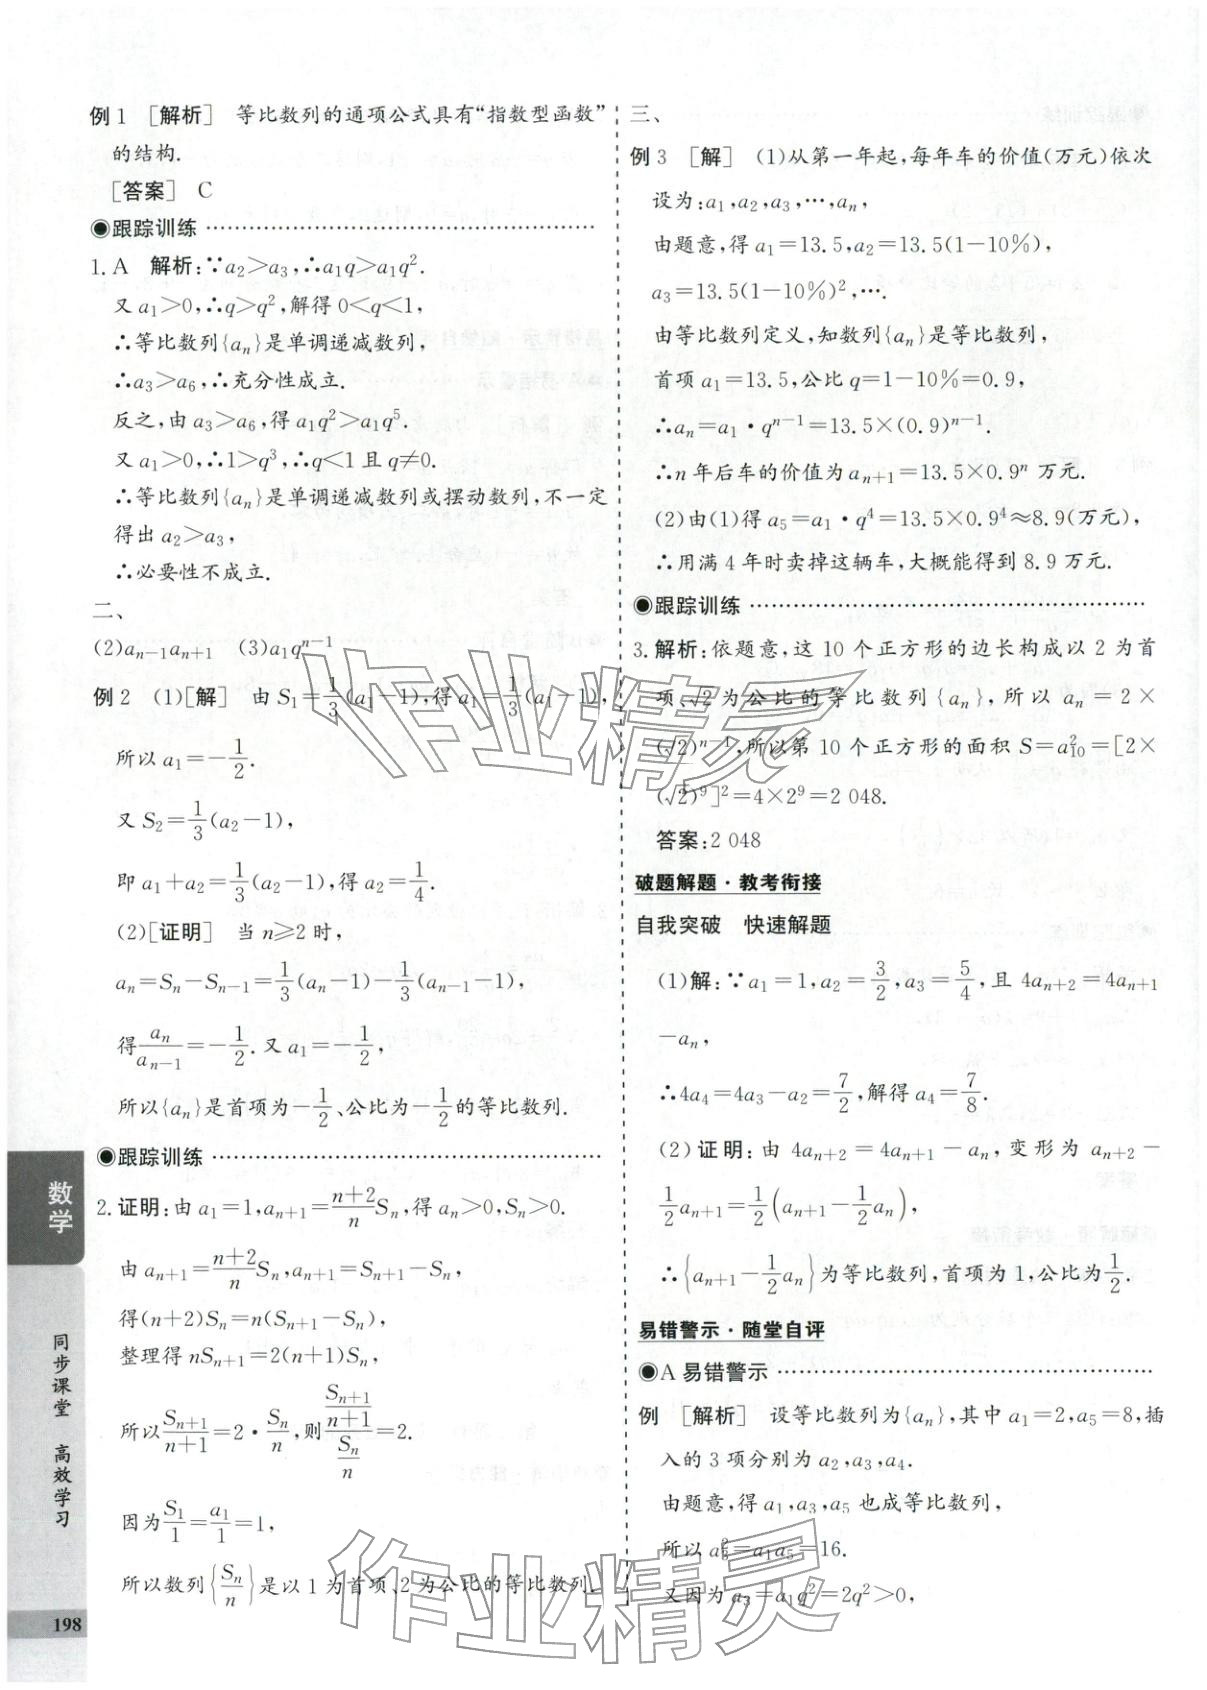 例 1 [解析] 等比数列的通项公式具有“指数型函数”
的结构.
[答案] C
◉跟踪训练
1. A 解析:∵a₂>a₃,∴a₁q>a₁q².
又 a₁>0,∴q>q²,解得 0<q<1,
∴等比数列{aₙ}是单调递减数列,
∴a₃>a₆,∴充分性成立.
反之,由 a₃>a₆,得 a₁q²>a₁q⁵.
又 a₁>0,∴1>q³,∴q<1 且 q≠0.
∴等比数列{aₙ}是单调递减数列或摆动数列,不一定
得出 a₂>a₃,
∴必要性不成立.
二、
(2)aₙ₋₁aₙ₊₁ (3)a₁qⁿ⁻¹
例 2 (1)[解] 由 S₁=1/3(a₁-1),得 a₁=1/3(a₁-1),
所以 a₁=-1/2.
又 S₂=1/3(a₂-1),
即 a₁+a₂=1/3(a₂-1),得 a₂=1/4.
(2)[证明] 当 n≥2 时,
aₙ=Sₙ-Sₙ₋₁=1/3(aₙ-1)-1/3(aₙ₋₁-1),
得aₙ/aₙ₋₁=-1/2.又 a₁=-1/2,
所以{aₙ}是首项为-1/2、公比为-1/2的等比数列.
◉跟踪训练
2. 证明:由 a₁=1,aₙ₊₁=(n+2)/n Sₙ,得 aₙ>0,Sₙ>0.
由 aₙ₊₁=(n+2)/n Sₙ,aₙ₊₁=Sₙ₊₁-Sₙ,
得(n+2)Sₙ=n(Sₙ₊₁-Sₙ),
整理得 nSₙ₊₁=2(n+1)Sₙ,
所以 Sₙ₊₁/(n+1)=2·Sₙ/n,则 (Sₙ₊₁/(n+1))/(Sₙ/n)=2.
因为 S₁/1=a₁/1=1,
所以数列{Sₙ/n}是以 1 为首项、2 为公比的等比数列.
三、
例 3 [解] (1)从第一年起,每年车的价值(万元)依次
设为:a₁,a₂,a₃,…,aₙ,
由题意,得 a₁=13.5,a₂=13.5(1-10%),
a₃=13.5(1-10%)²,….
由等比数列定义,知数列{aₙ}是等比数列,
首项 a₁=13.5,公比 q=1-10%=0.9,
∴aₙ=a₁·qⁿ⁻¹=13.5×(0.9)ⁿ⁻¹.
∴n 年后车的价值为 aₙ₊₁=13.5×0.9ⁿ 万元.
(2)由(1)得 a₅=a₁·q⁴=13.5×0.9⁴≈8.9(万元),
∴用满 4 年时卖掉这辆车,大概能得到 8.9 万元.
◉跟踪训练
3. 解析:依题意,这 10 个正方形的边长构成以 2 为首
项、√2为公比的等比数列{aₙ},所以 aₙ=2×
(√2)ⁿ⁻¹,所以第 10 个正方形的面积 S=a₁₀²=[2×
(√2)⁹]²=4×2⁹=2 048.
答案:2 048
破题解题·教考衔接
自我突破 快速解题
(1)解:∵a₁=1,a₂=3/2,a₃=5/4,且 4aₙ₊₂=4aₙ₊₁
-aₙ,
∴4a₄=4a₃-a₂=7/2,解得 a₄=7/8.
(2)证明:由 4aₙ₊₂=4aₙ₊₁-aₙ,变形为 aₙ₊₂-
1/2aₙ₊₁=1/2(aₙ₊₁-1/2aₙ),
∴{aₙ₊₁-1/2aₙ}为等比数列,首项为 1,公比为1/2.
易错警示·随堂自评
◉A 易错警示
例 [解析] 设等比数列为{aₙ},其中 a₁=2,a₅=8,插
入的 3 项分别为 a₂,a₃,a₄.
由题意,得 a₁,a₃,a₅ 也成等比数列,
所以 a₃²=a₁a₅=16.
又因为 a₃=a₁q²=2q²>0,
数学
同步课堂 高效学习
198
作业精灵
作业精灵